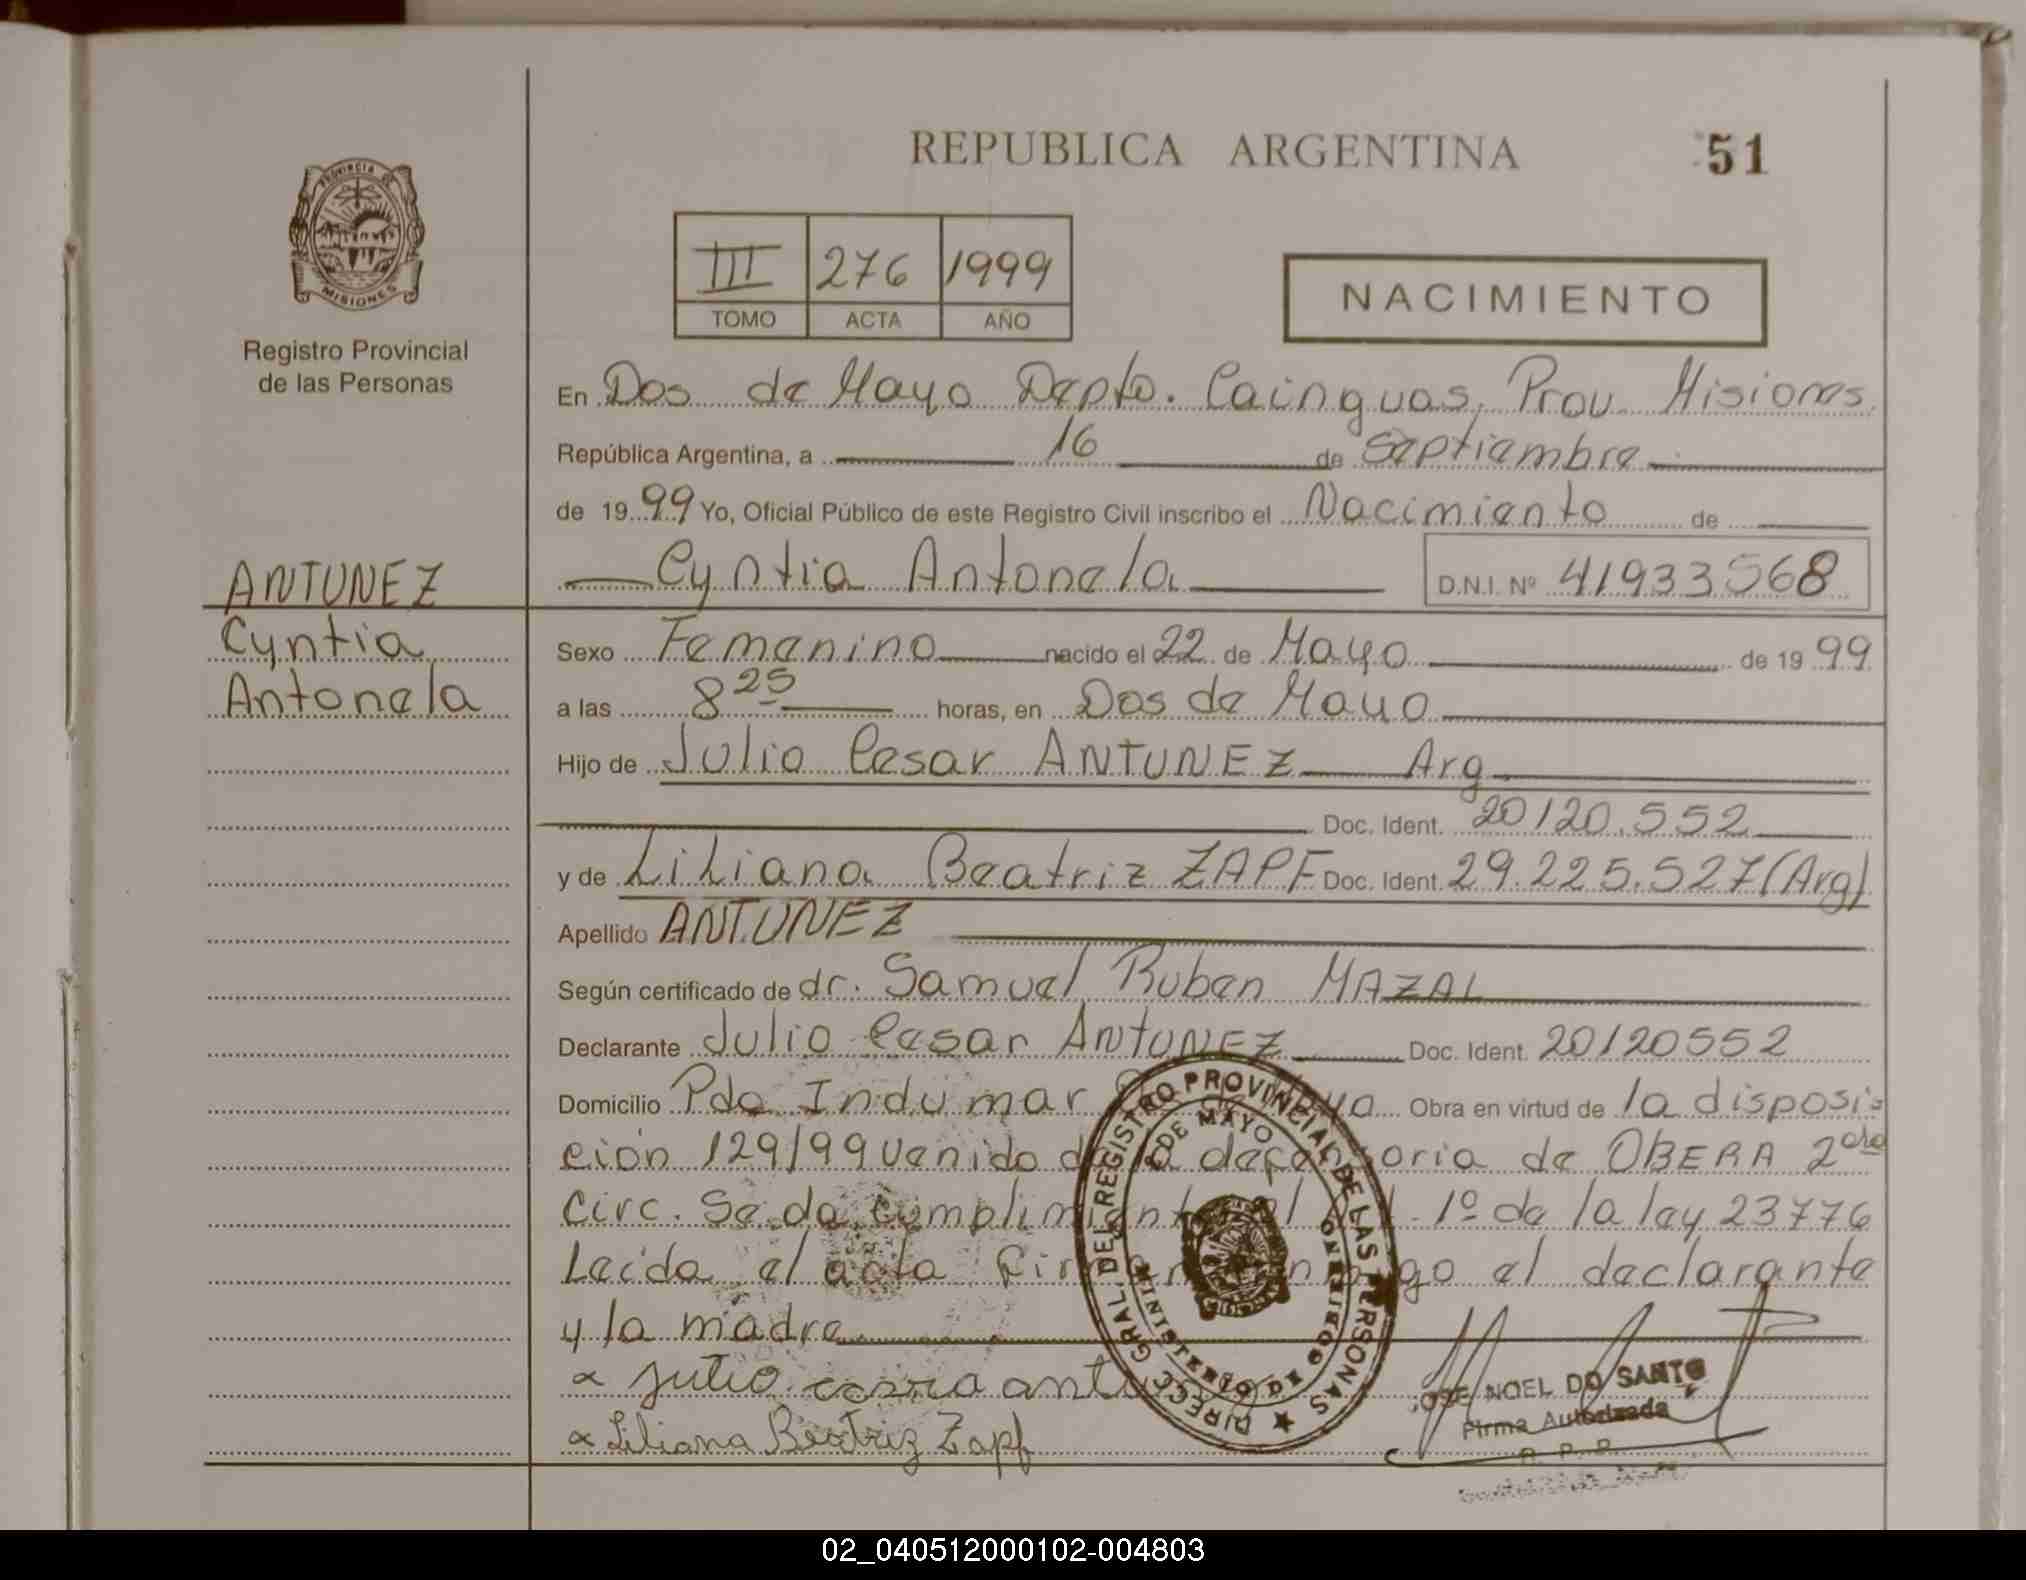 REPUBLICA ARGENTINA
51
PROVINCIA DE
MISIONES
Registro Provincial
de las Personas
III 276 1999
TOMO ACTA AÑO
NACIMIENTO
En Dos de Mayo Depto. Cainguas, Prov. Misiones
República Argentina, a 16 de Septiembre
de 1999 Yo, Oficial Público de este Registro Civil inscribo el Nacimiento de
Cyntia Antonela D.N.I. Nº 41933568
ANTUNEZ
Cyntia
Antonela
Sexo Femenino nacido el 22 de Mayo de 1999
a las 8 25 horas, en Dos de Mayo
Hijo de Julio Cesar ANTUNEZ Arg
Doc. Ident. 20120.552
y de Liliana Beatriz ZAPF Doc. Ident. 29.225.527 (Arg)
Apellido ANTUNEZ
Según certificado de dr. Samuel Ruben MAZAL
Declarante Julio Cesar ANTUNEZ Doc. Ident. 20120552
Domicilio Pdo Indumar Obra en virtud de la disposi-
ción 129/99 venido de la defensoria de OBERA 2da
Circ. Se da cumplimiento 1º de la ley 23776
Leida el acta el declarante
y la madre
x Julio
x Liliana Beatriz Zapf
DIRECC. GRAL. DEL REGISTRO PROVINCIAL DE LAS PERSONAS
2 DE MAYO
MINISTERIO DE GOBIERNO
JOSE NOEL DO SANTO
Firma Autorizada
R. P. P.
02_040512000102-004803